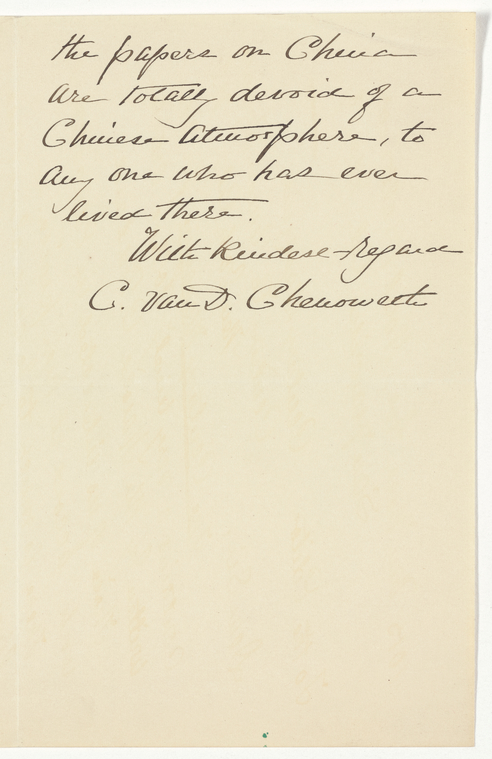 the papers on China
are totally devoid of a
Chinese atmosphere, to
any one who has ever
lived there.
With kindest regard
C. Van D. Chenoweth